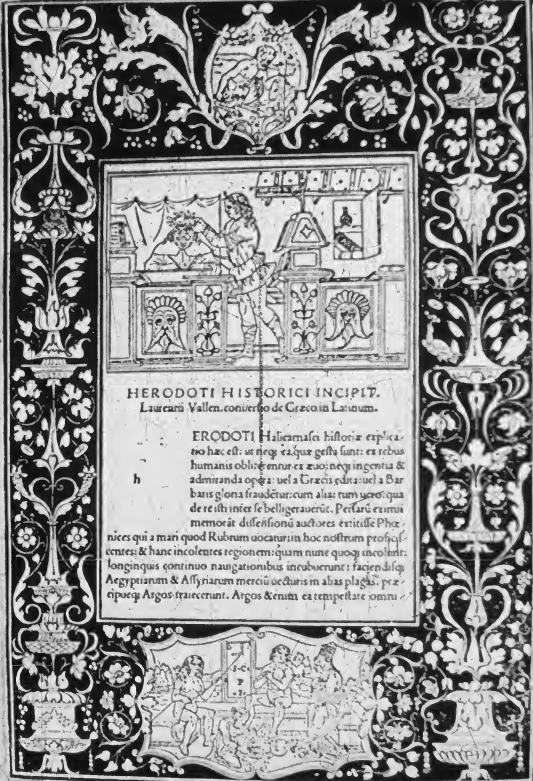 HERODOTI HISTORICI INCIPIT.
Laurentii Vallen. conversio de Græco in Latinum.
ERODOTI Halicarnasei historiæ explica
tio hæc est: ut neqȝ ea quæ gesta sunt: ex rebus
humanis obliterentur ex æuo: neqȝ ingentia &
h
admiranda opera: uel a Græcis edita: uel a Bar
baris gloria fraudētur: cum alia: tum uero: qua
de re isti inter se belligerauerūt. Persarū eximii
memorāt dissensionū auctores extitisse Phœ
nices qui a mari quod Rubrum uocatur: in hoc nostrum proficis
centes: & hanc incolentes regionem: quam nunc quoqȝ incolunt:
longinquis continuo nauigationibus incubuerunt: faciendisqȝ
Aegyptiarum & Assyriarum merciū uecturis in alias plagas. præ
cipueqȝ Argos traiecerunt. Argos &enim ea tempestate omni